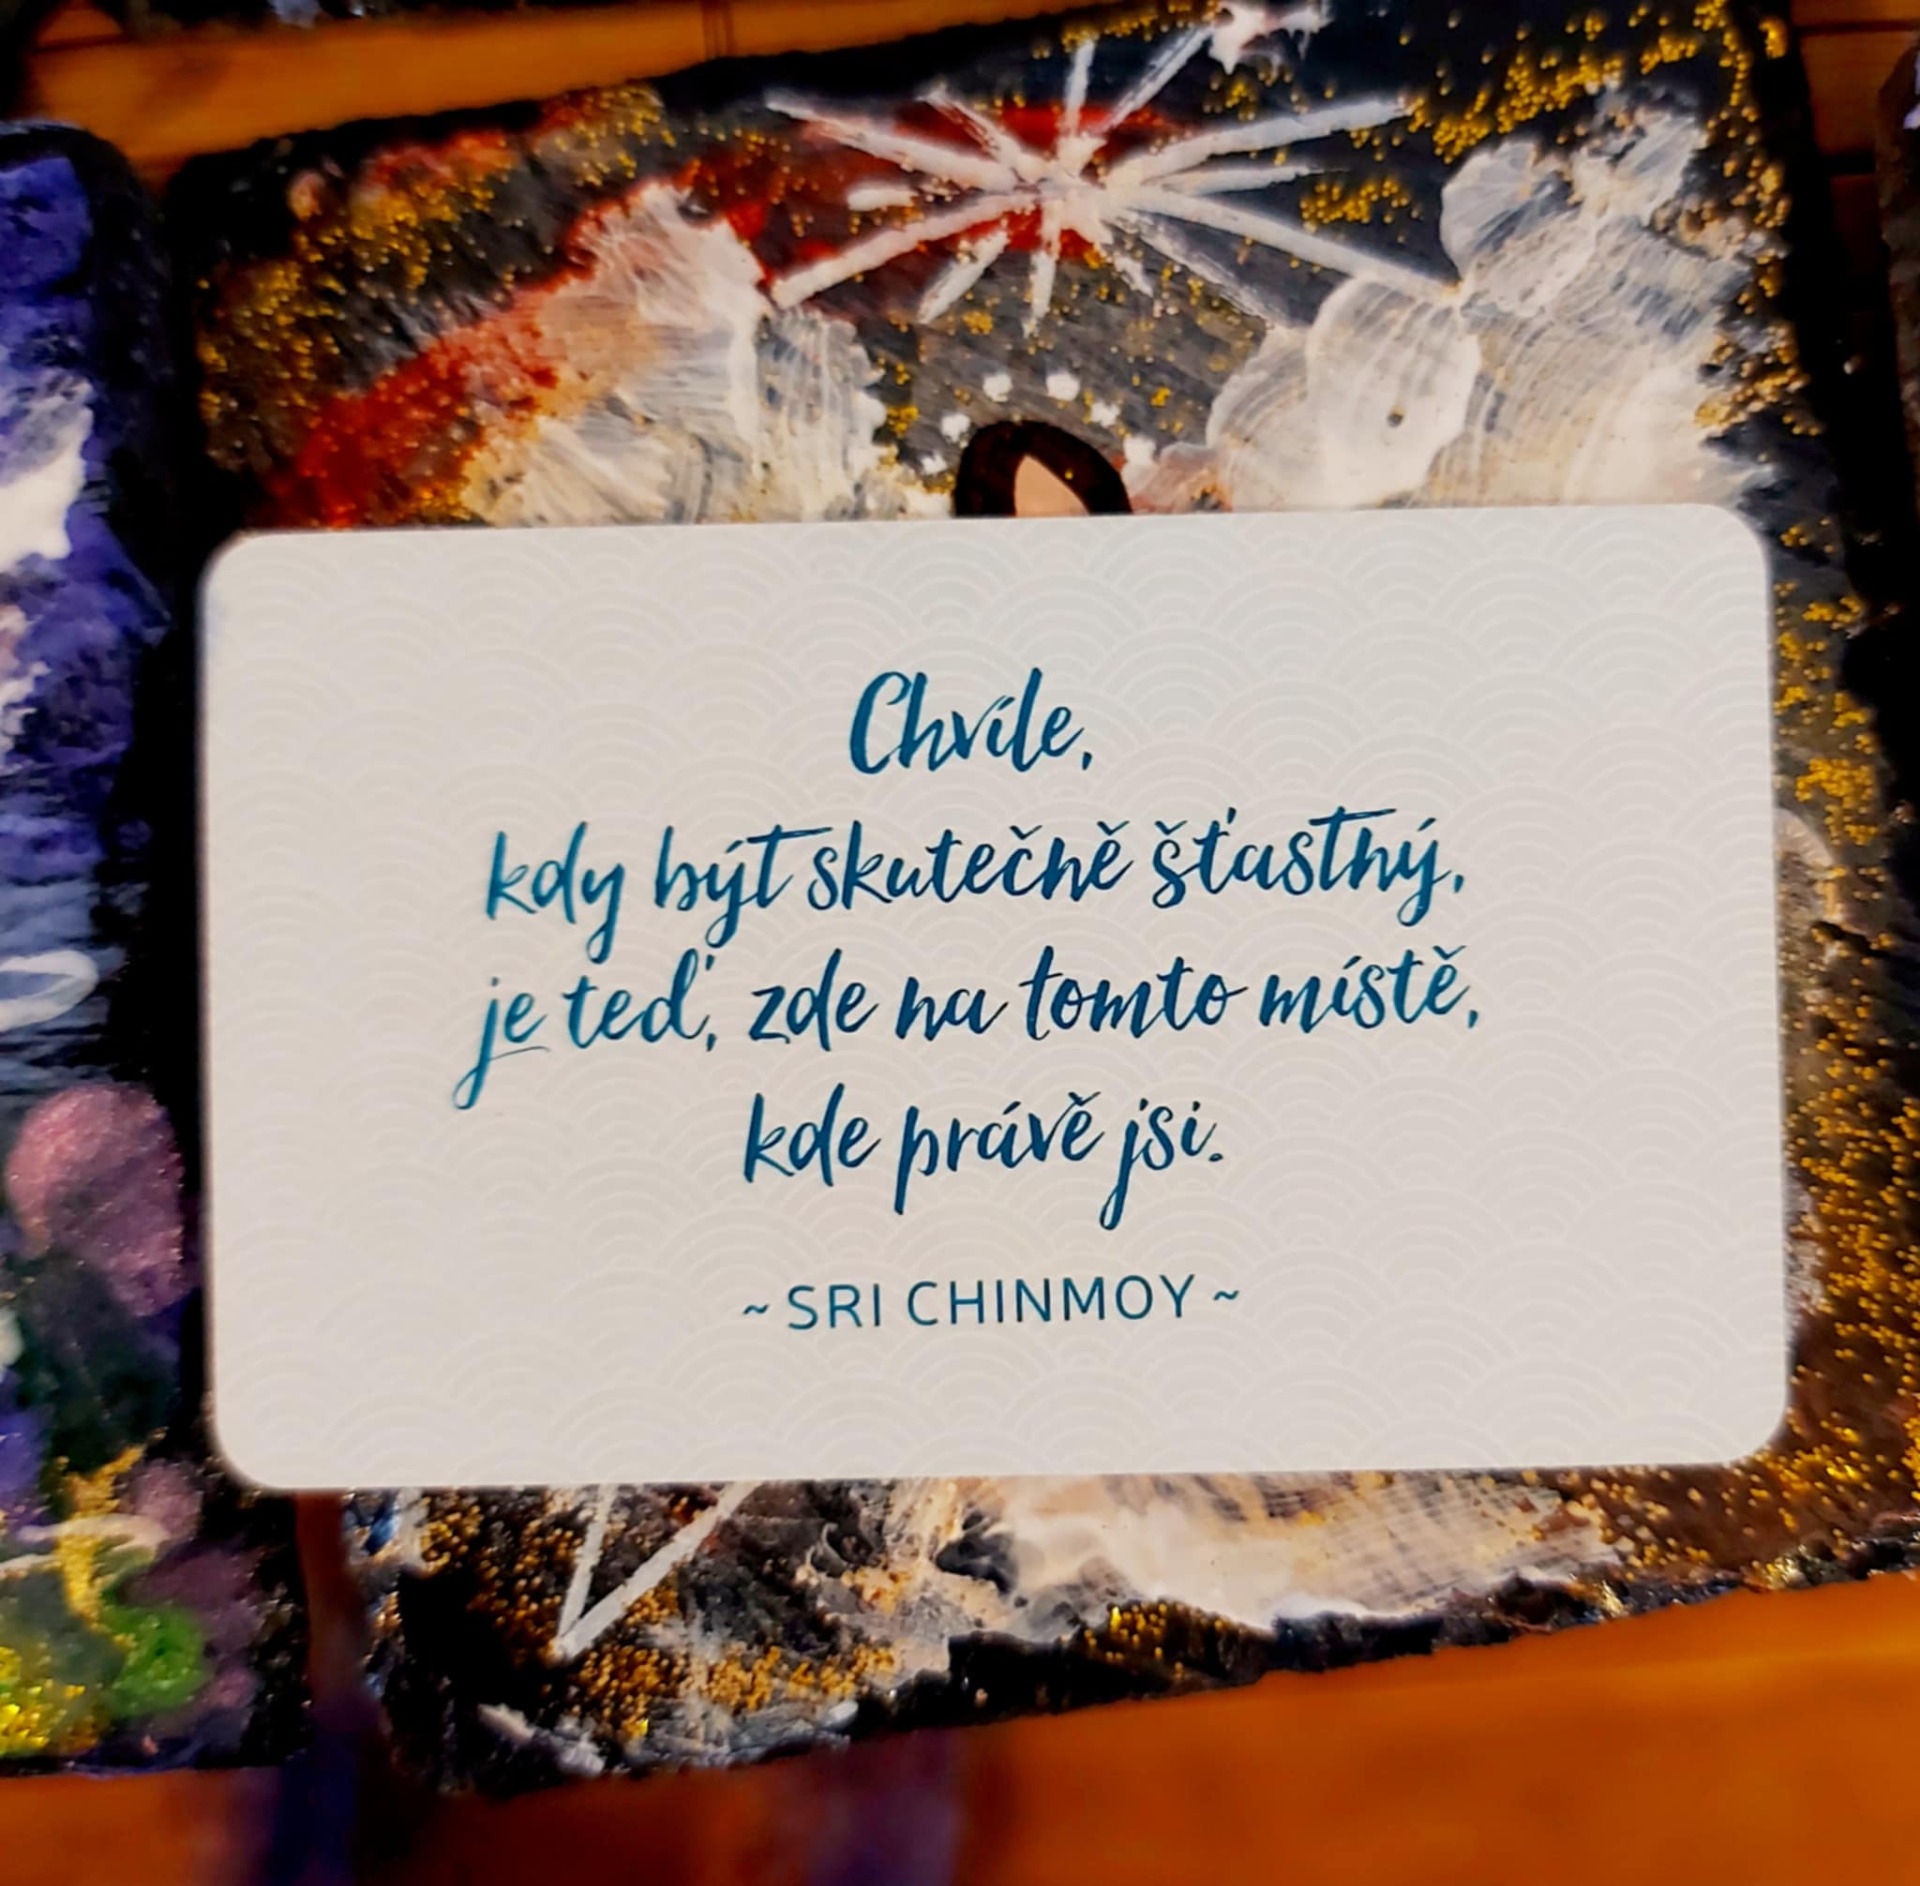 Chvíle,
kdy být skutečně šťastný,
je teď, zde na tomto místě,
kde právě jsi.
~ SRI CHINMOY ~